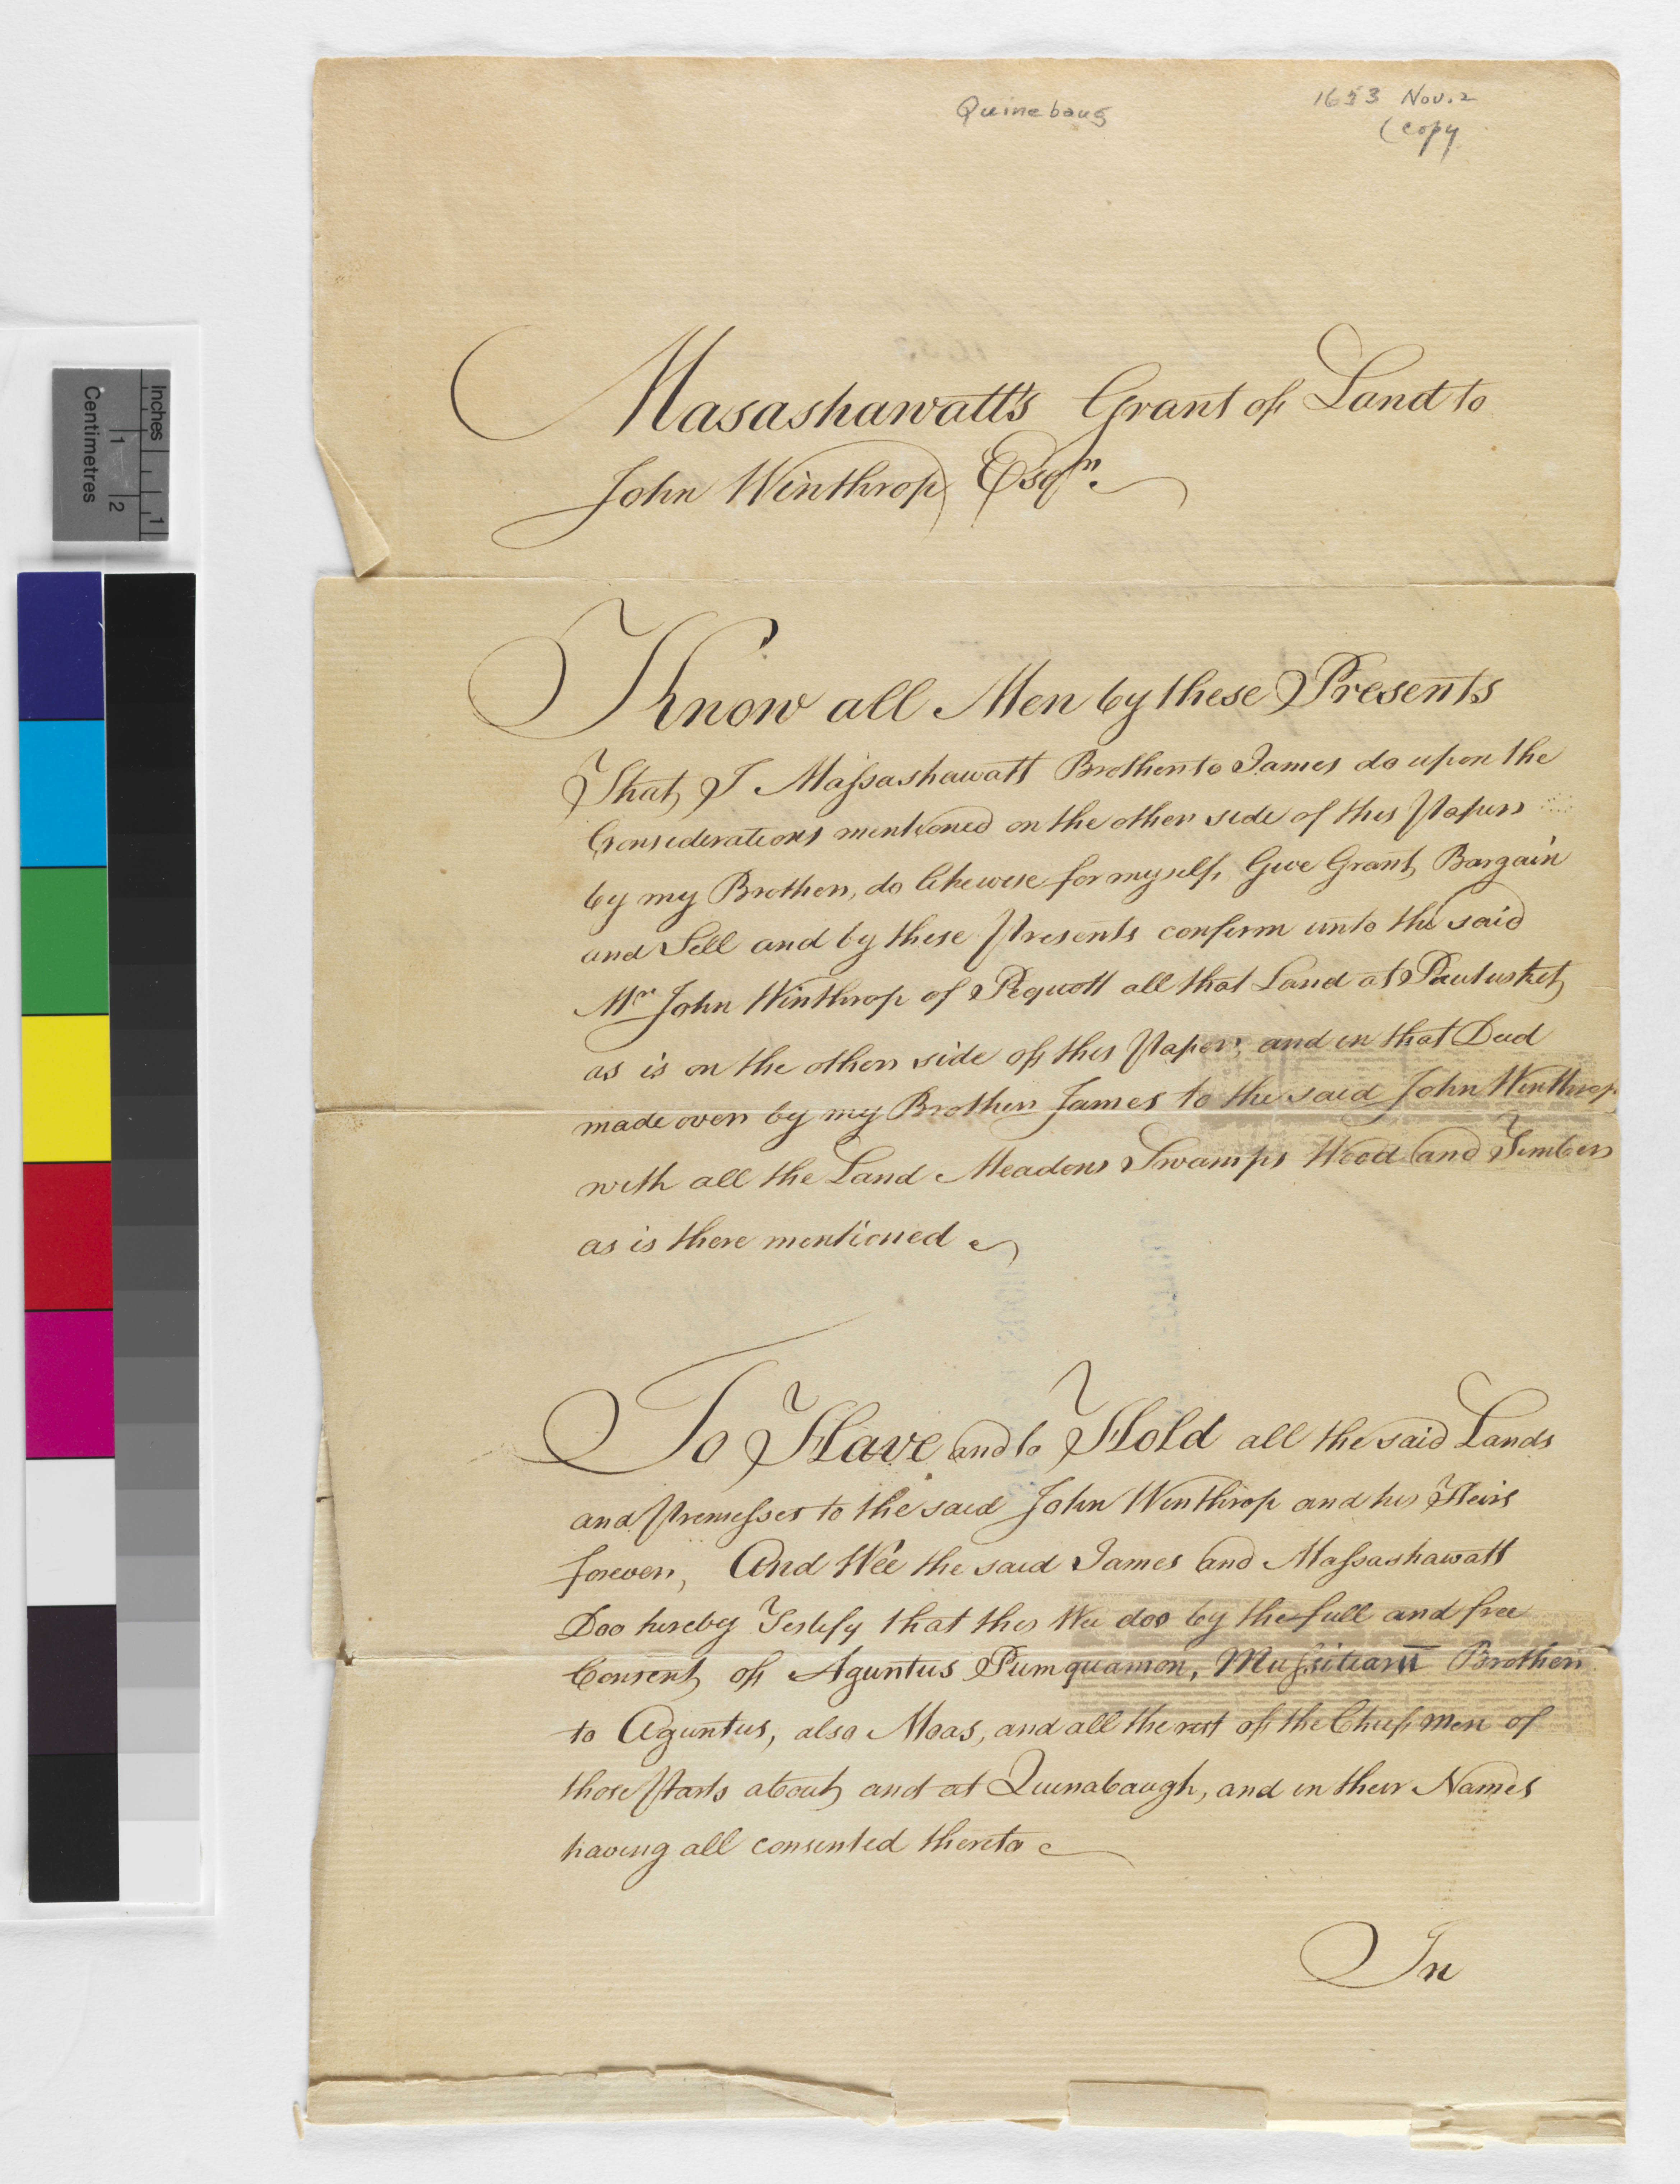 Quinebaug
1653 Nov. 2
(copy
Inches
1
Centimetres
1
2
Masashawatt's Grant of Land to
John Winthrop Esqr.
Know all Men by these Presents
That I Massashawatt Brother to James do upon the
Considerations mentioned on the other side of this Paper
by my Brother, do likewise for myself, Give Grant Bargain
and Sell and by these Presents confirm unto the said
Mr John Winthrop of Pequott all that Land at Pautusket
as is on the other side of this Paper, and in that Deed
made over by my Brother James to the said John Winthrop
with all the Land Meadows Swamps Wood and Timber
as is there mentioned
To Have and to Hold all the said Lands
and Premesses to the said John Winthrop and his Heirs
forever, And Wee the said James and Massashawatt
Doo hereby Testify that this We doo by the full and free
Consent of Aguntus Pumquamon, Mussitiarn Brother
to Aguntus, also Moas, and all the rest of the Chief men of
those Parts about and at Quinabaugh, and in their Names
having all consented thereto
In